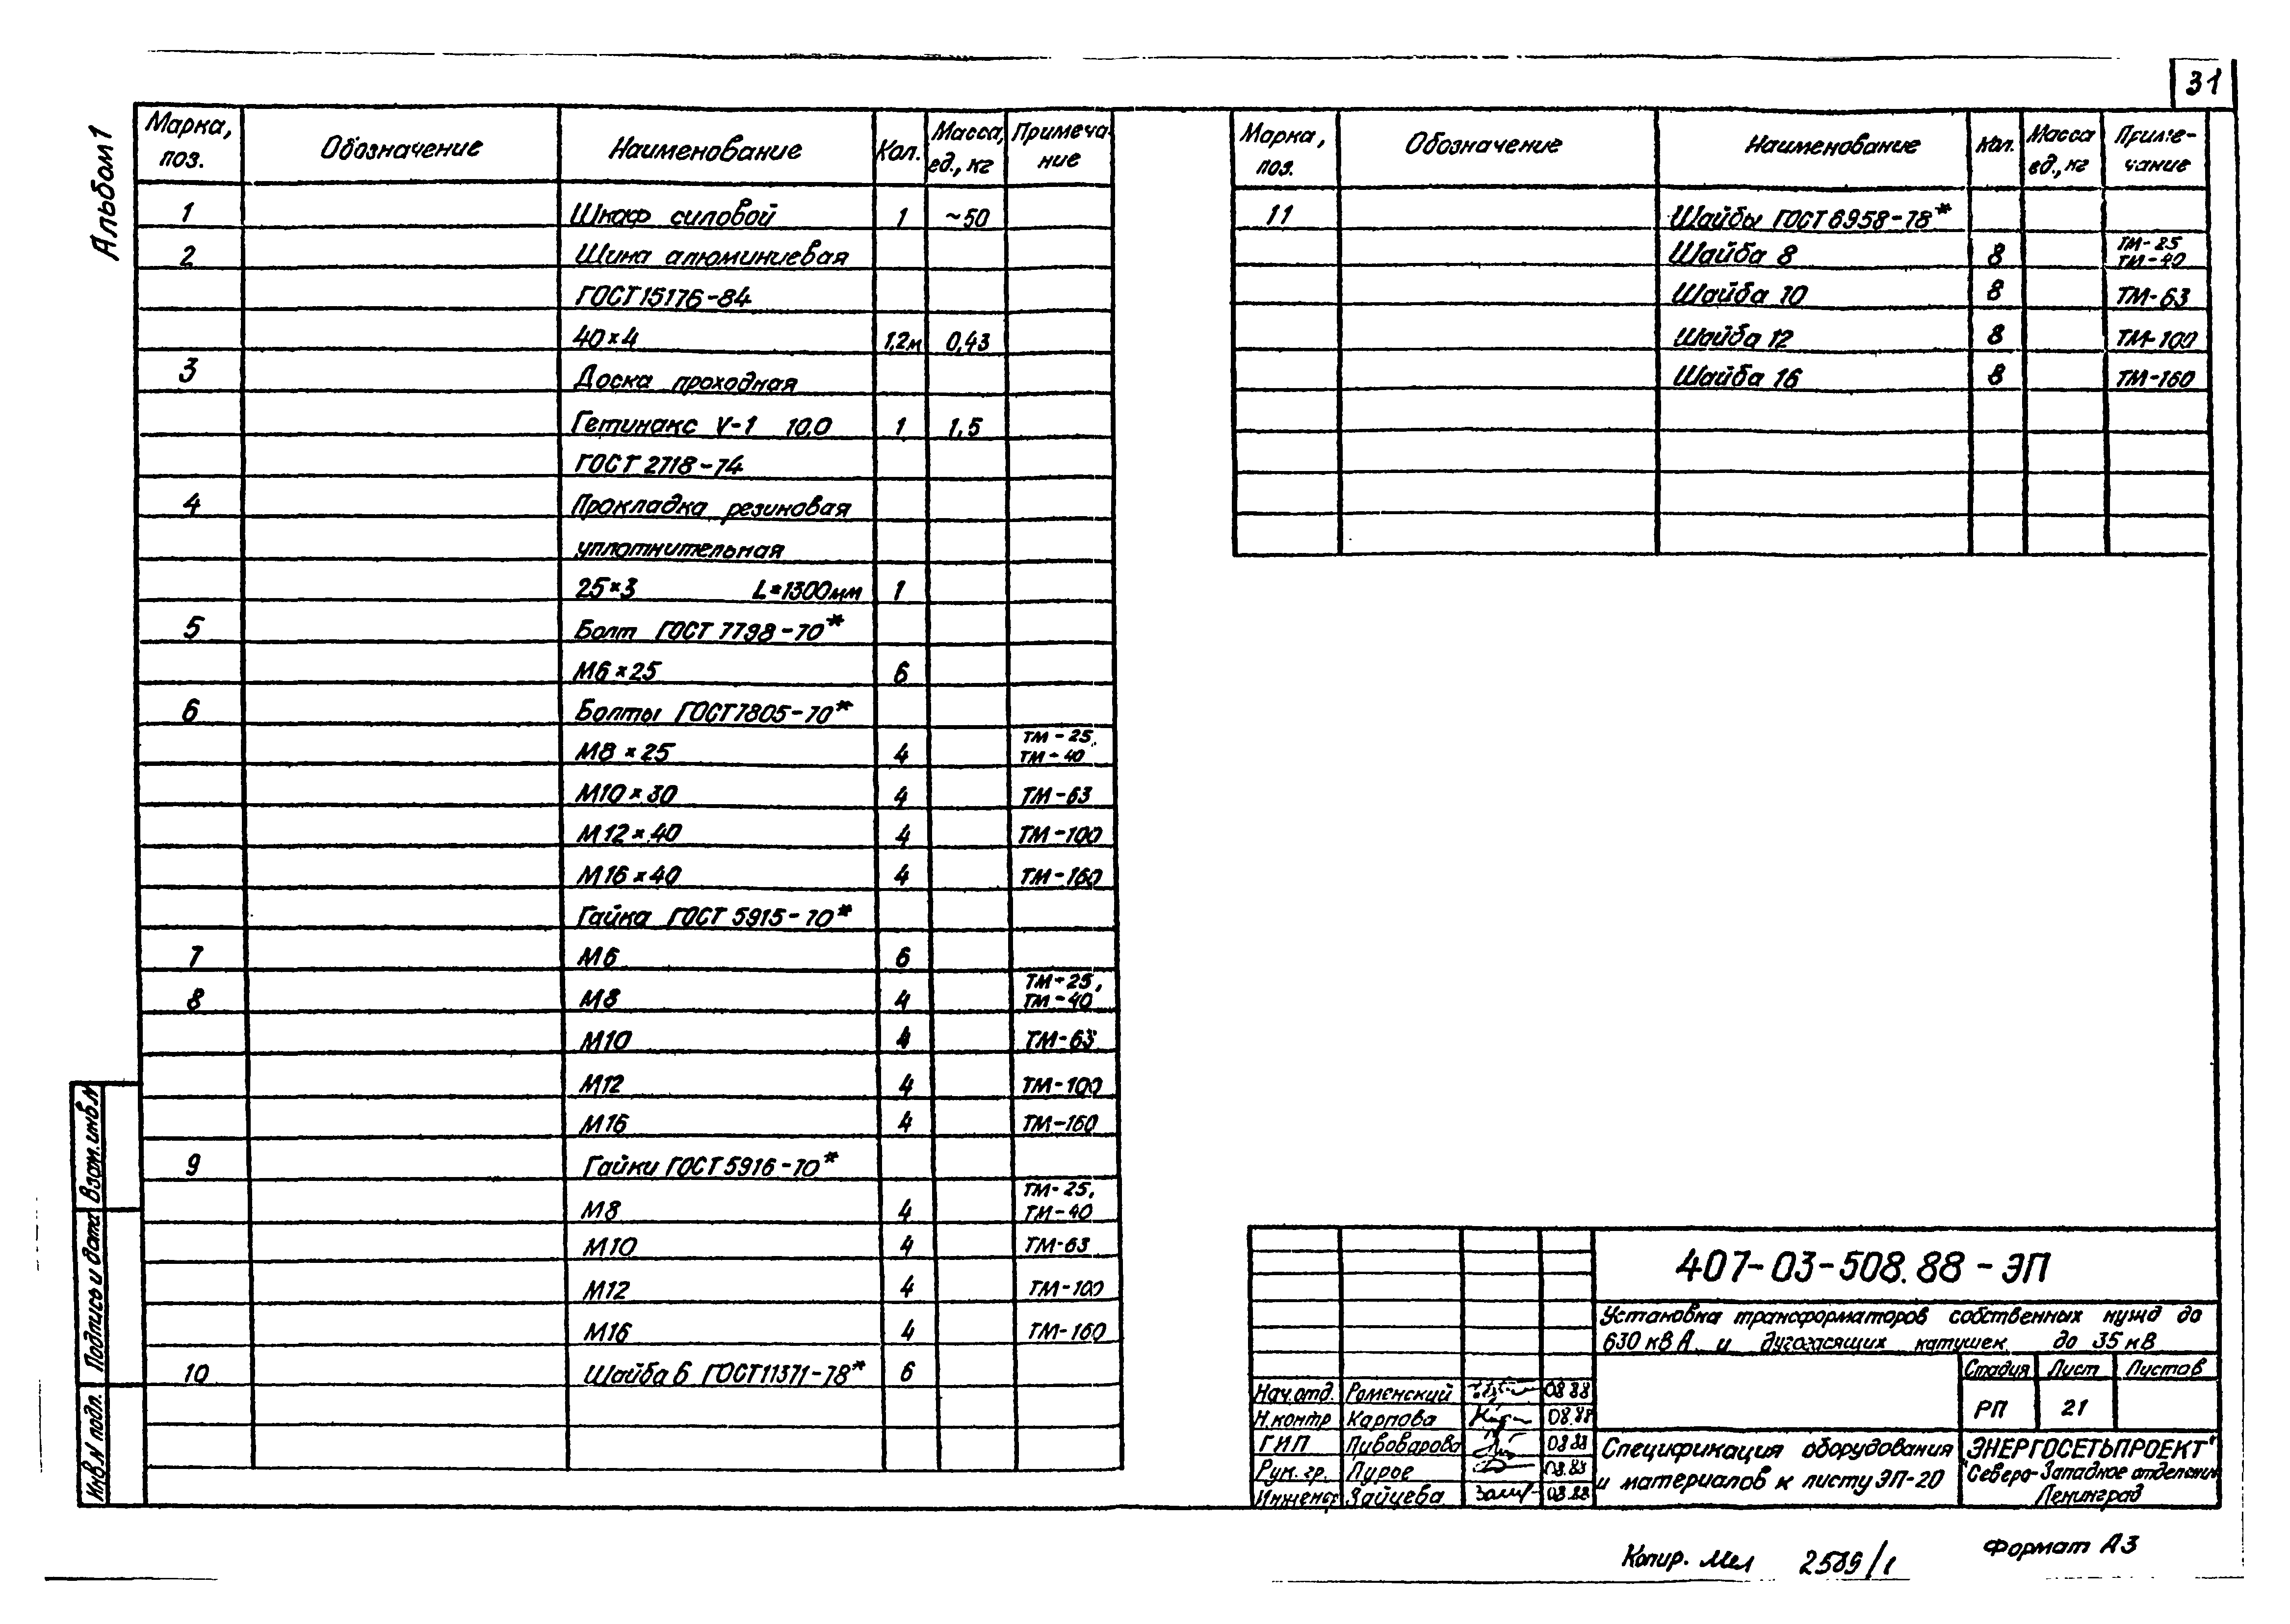 31
Альбом 1
Марка, поз. Обозначение Наименование Кол. Масса, ед., кг Примечание
1 Шкаф силовой 1 ~50
2 Шина алюминиевая
ГОСТ 15176-84
40×4 1,2м 0,43
3 Доска проходная
Гетинакс V-1 10,0 1 1,5
ГОСТ 2718-74
4 Прокладка резиновая
уплотнительная
25×3 L=1300мм 1
5 Болт ГОСТ 7798-70*
М6×25 6
6 Болты ГОСТ 7805-70*
М8×25 4 ТМ-25, ТМ-40
М10×30 4 ТМ-63
М12×40 4 ТМ-100
М16×40 4 ТМ-160
Гайка ГОСТ 5915-70*
7 М6 6
8 М8 4 ТМ-25, ТМ-40
М10 4 ТМ-63
М12 4 ТМ-100
М16 4 ТМ-160
9 Гайки ГОСТ 5916-70*
М8 4 ТМ-25, ТМ-40
М10 4 ТМ-63
М12 4 ТМ-100
М16 4 ТМ-160
10 Шайба 6 ГОСТ 11371-78* 6
Марка, поз. Обозначение Наименование Кол. Масса ед., кг Примечание
11 Шайбы ГОСТ 6958-78*
Шайба 8 8 ТМ-25 ТМ-40
Шайба 10 8 ТМ-63
Шайба 12 8 ТМ-100
Шайба 16 8 ТМ-160
Взам. инв. N
Подпись и дата
Инв. N подл.
407-03-508.88-ЭП
Установка трансформаторов собственных нужд до
630 кВА и дугогасящих катушек до 35 кВ
Стадия Лист Листов
РП 21
Нач. отд. Роменский 08.88
Н. контр Карпова 08.88
ГИП Пивоварова 08.88
Рук. гр. Лурое 08.88
Инженер Зайцева 08.88
Спецификация оборудования
и материалов к листу ЭП-20
ЭНЕРГОСЕТЬПРОЕКТ"
"Северо-Западное отделение
Ленинград
Копир. Мел 2589/1 Формат А3